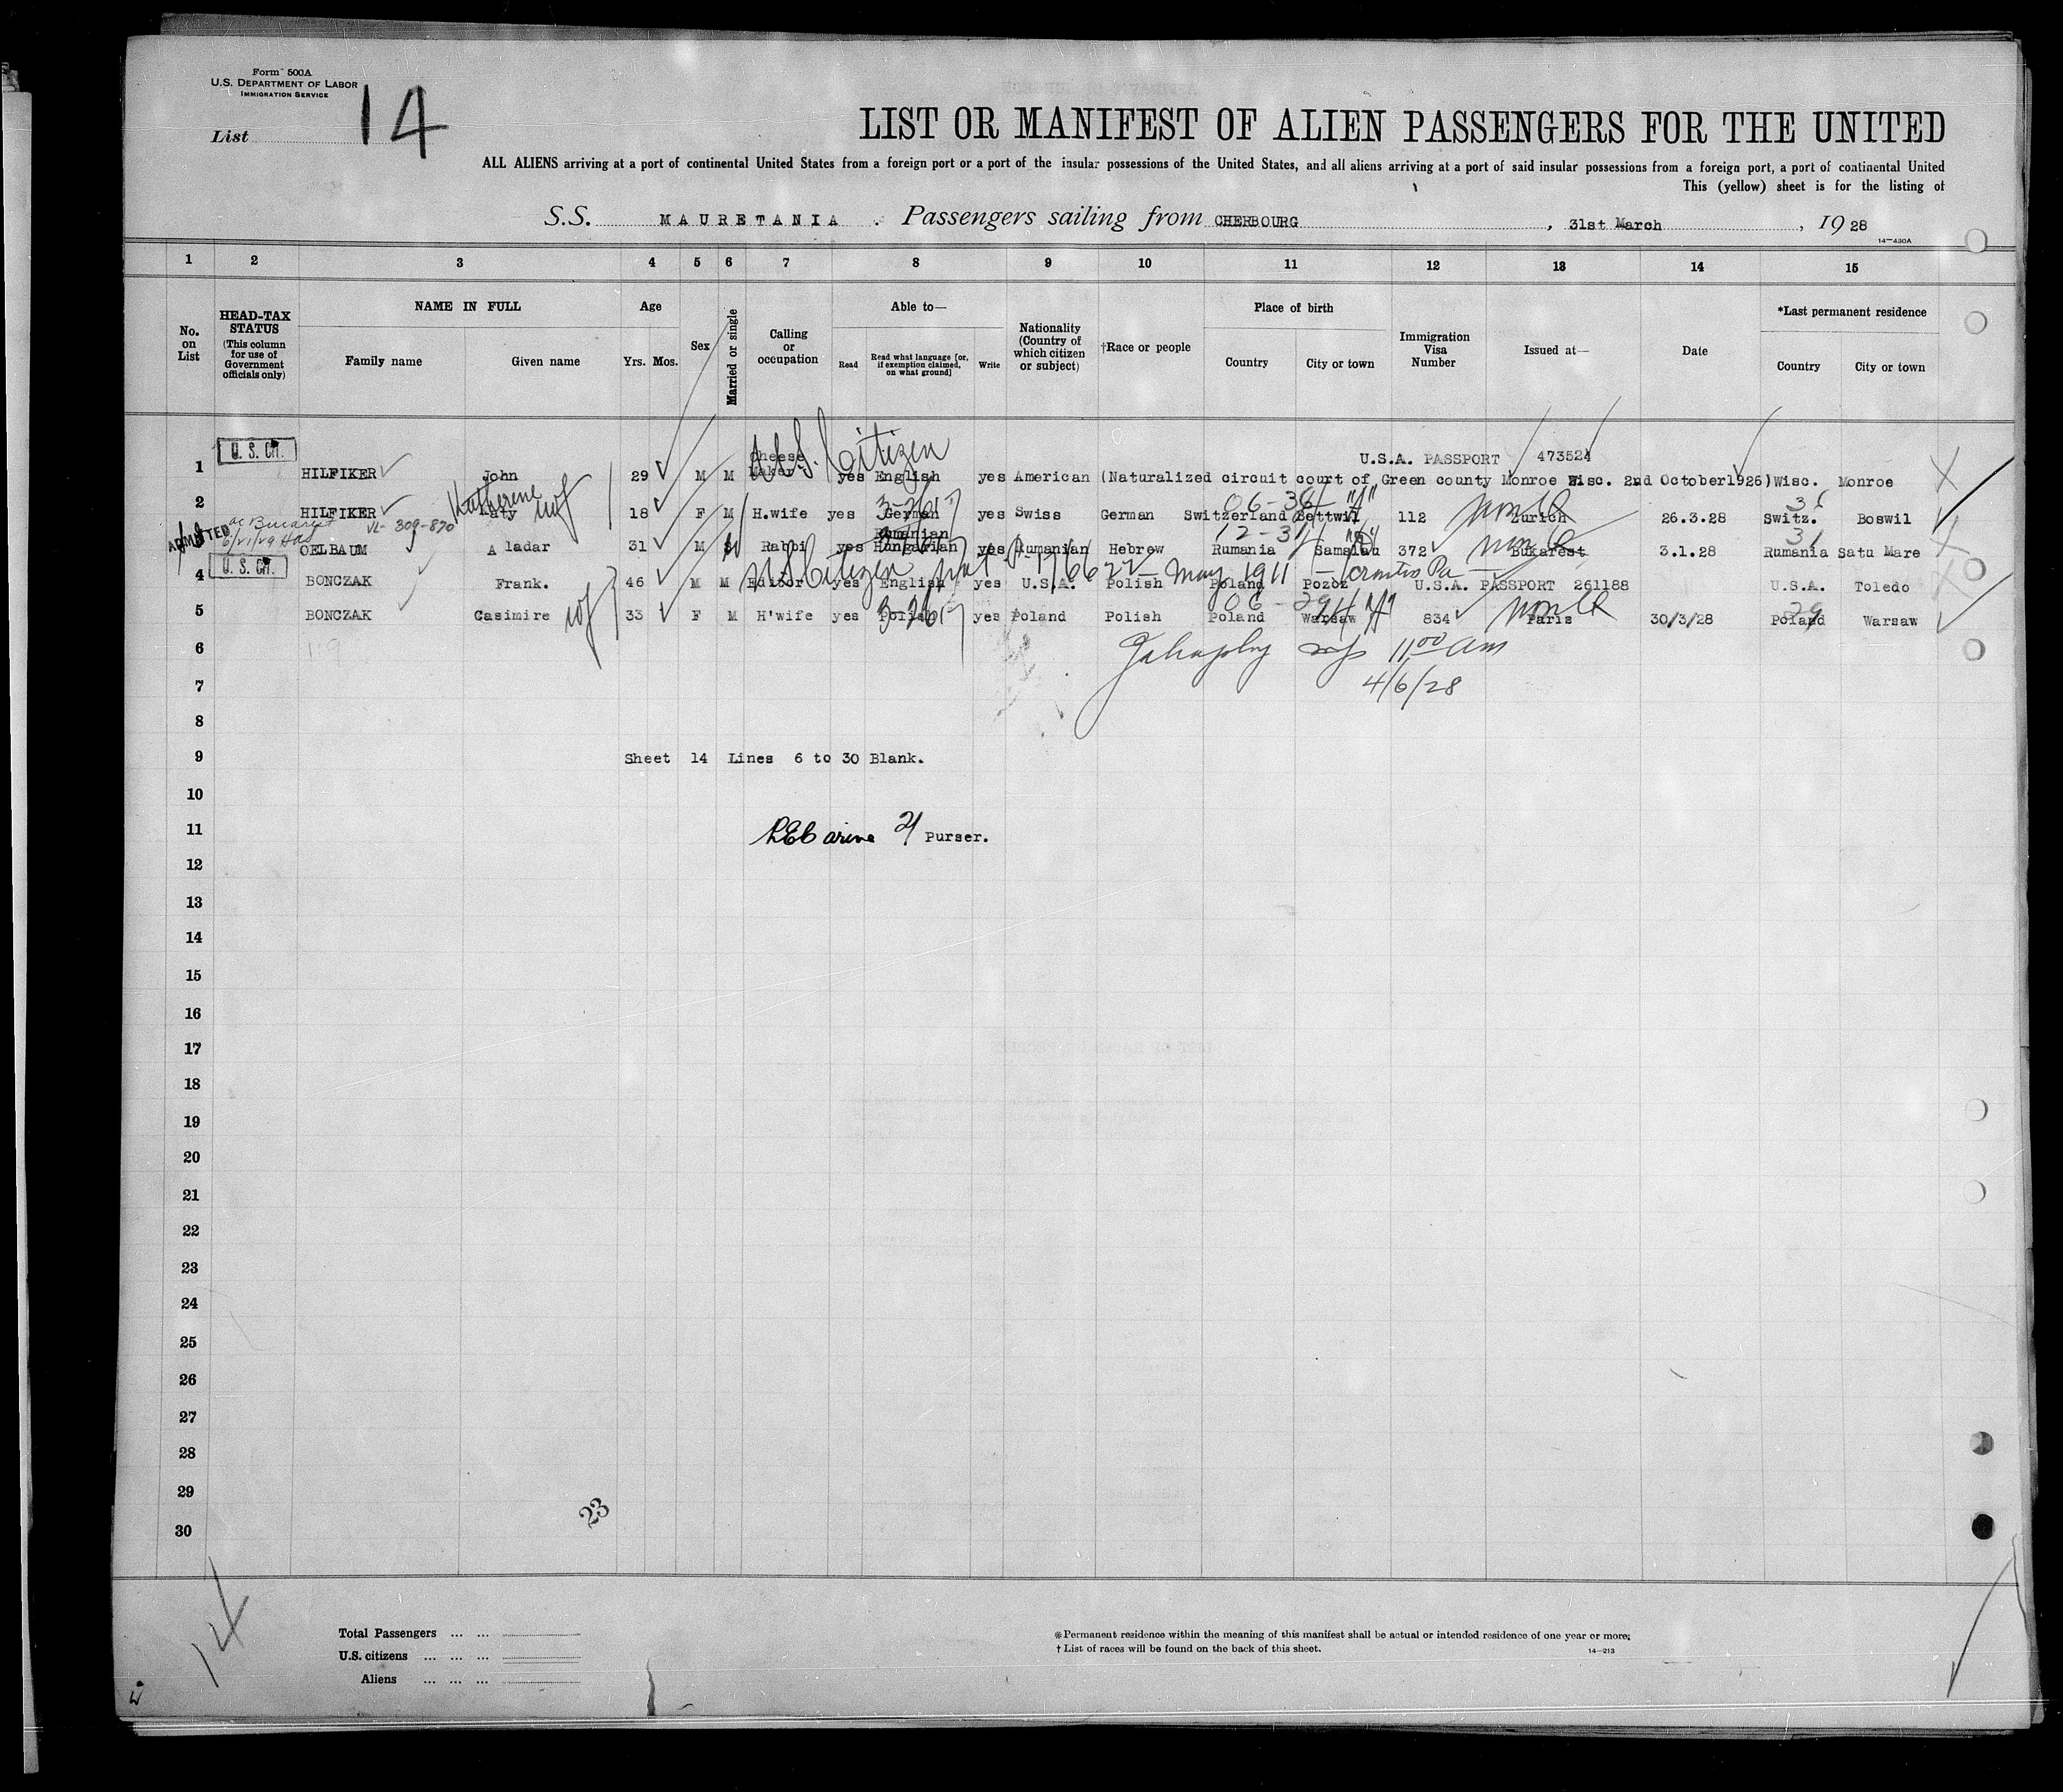 Form 500A
U.S. DEPARTMENT OF LABOR
IMMIGRATION SERVICE
List 14
LIST OR MANIFEST OF ALIEN PASSENGERS FOR THE UNITED
ALL ALIENS arriving at a port of continental United States from a foreign port or a port of the insular possessions of the United States, and all aliens arriving at a port of said insular possessions from a foreign port, a port of continental United
This (yellow) sheet is for the listing of
S.S. MAURETANIA . Passengers sailing from CHERBOURG , 31st March , 1928
14—430A
1 2 3 4 5 6 7 8 9 10 11 12 13 14 15
No. on List
HEAD-TAX STATUS (This column for use of Government officials only)
NAME IN FULL
Family name Given name
Age
Yrs. Mos.
Sex
Married or single
Calling or occupation
Able to—
Read Read what language [or, if exemption claimed, on what ground] Write
Nationality (Country of which citizen or subject)
†Race or people
Place of birth
Country City or town
Immigration Visa Number
Issued at—
Date
*Last permanent residence
Country City or town
U. S. Cit.
U.S. Citizen
U.S.A. PASSPORT 473524
1 HILFIKER John 29 M M Cheese Maker yes English yes American (Naturalized circuit court of Green county Monroe Wisc. 2nd October1926) Wisc. Monroe
Katherine wf 3-26 06-36 "A"
2 HILFIKER Katy 18 F M H.wife yes German yes Swiss German Switzerland Bettwil 112 Zurich 26.3.28 Switz. Boswil
ADMITTED VL-309-870 Rumanian 12-31
3 OELBAUM Aladar 31 M Rabbi yes Hungarian yes Rumanian Hebrew Rumania 372 Bukarest 3.1.28 Rumania Satu Mare
U. S. Cit.
US Citizen May 1911 Pa
4 BONCZAK Frank. 46 M M Editor yes English yes U.S.A. Polish Poland Pozoz U.S.A. PASSPORT 261188 U.S.A. Toledo
5 BONCZAK Casimire wf 33 F M H'wife yes Polish yes Poland Polish Poland Warsaw 834 Paris 30/3/28 Poland Warsaw
6 11 00 am
7 4/6/28
8
9 Sheet 14 Lines 6 to 30 Blank.
10
11 Purser.
12
13
14
15
16
17
18
19
20
21
22
23
24
25
26
27
28
29
23
30
14
Total Passengers ... ...
U.S. citizens ... ... ...
Aliens ... ... ...
*Permanent residence within the meaning of this manifest shall be actual or intended residence of one year or more.
† List of races will be found on the back of this sheet.
14—213